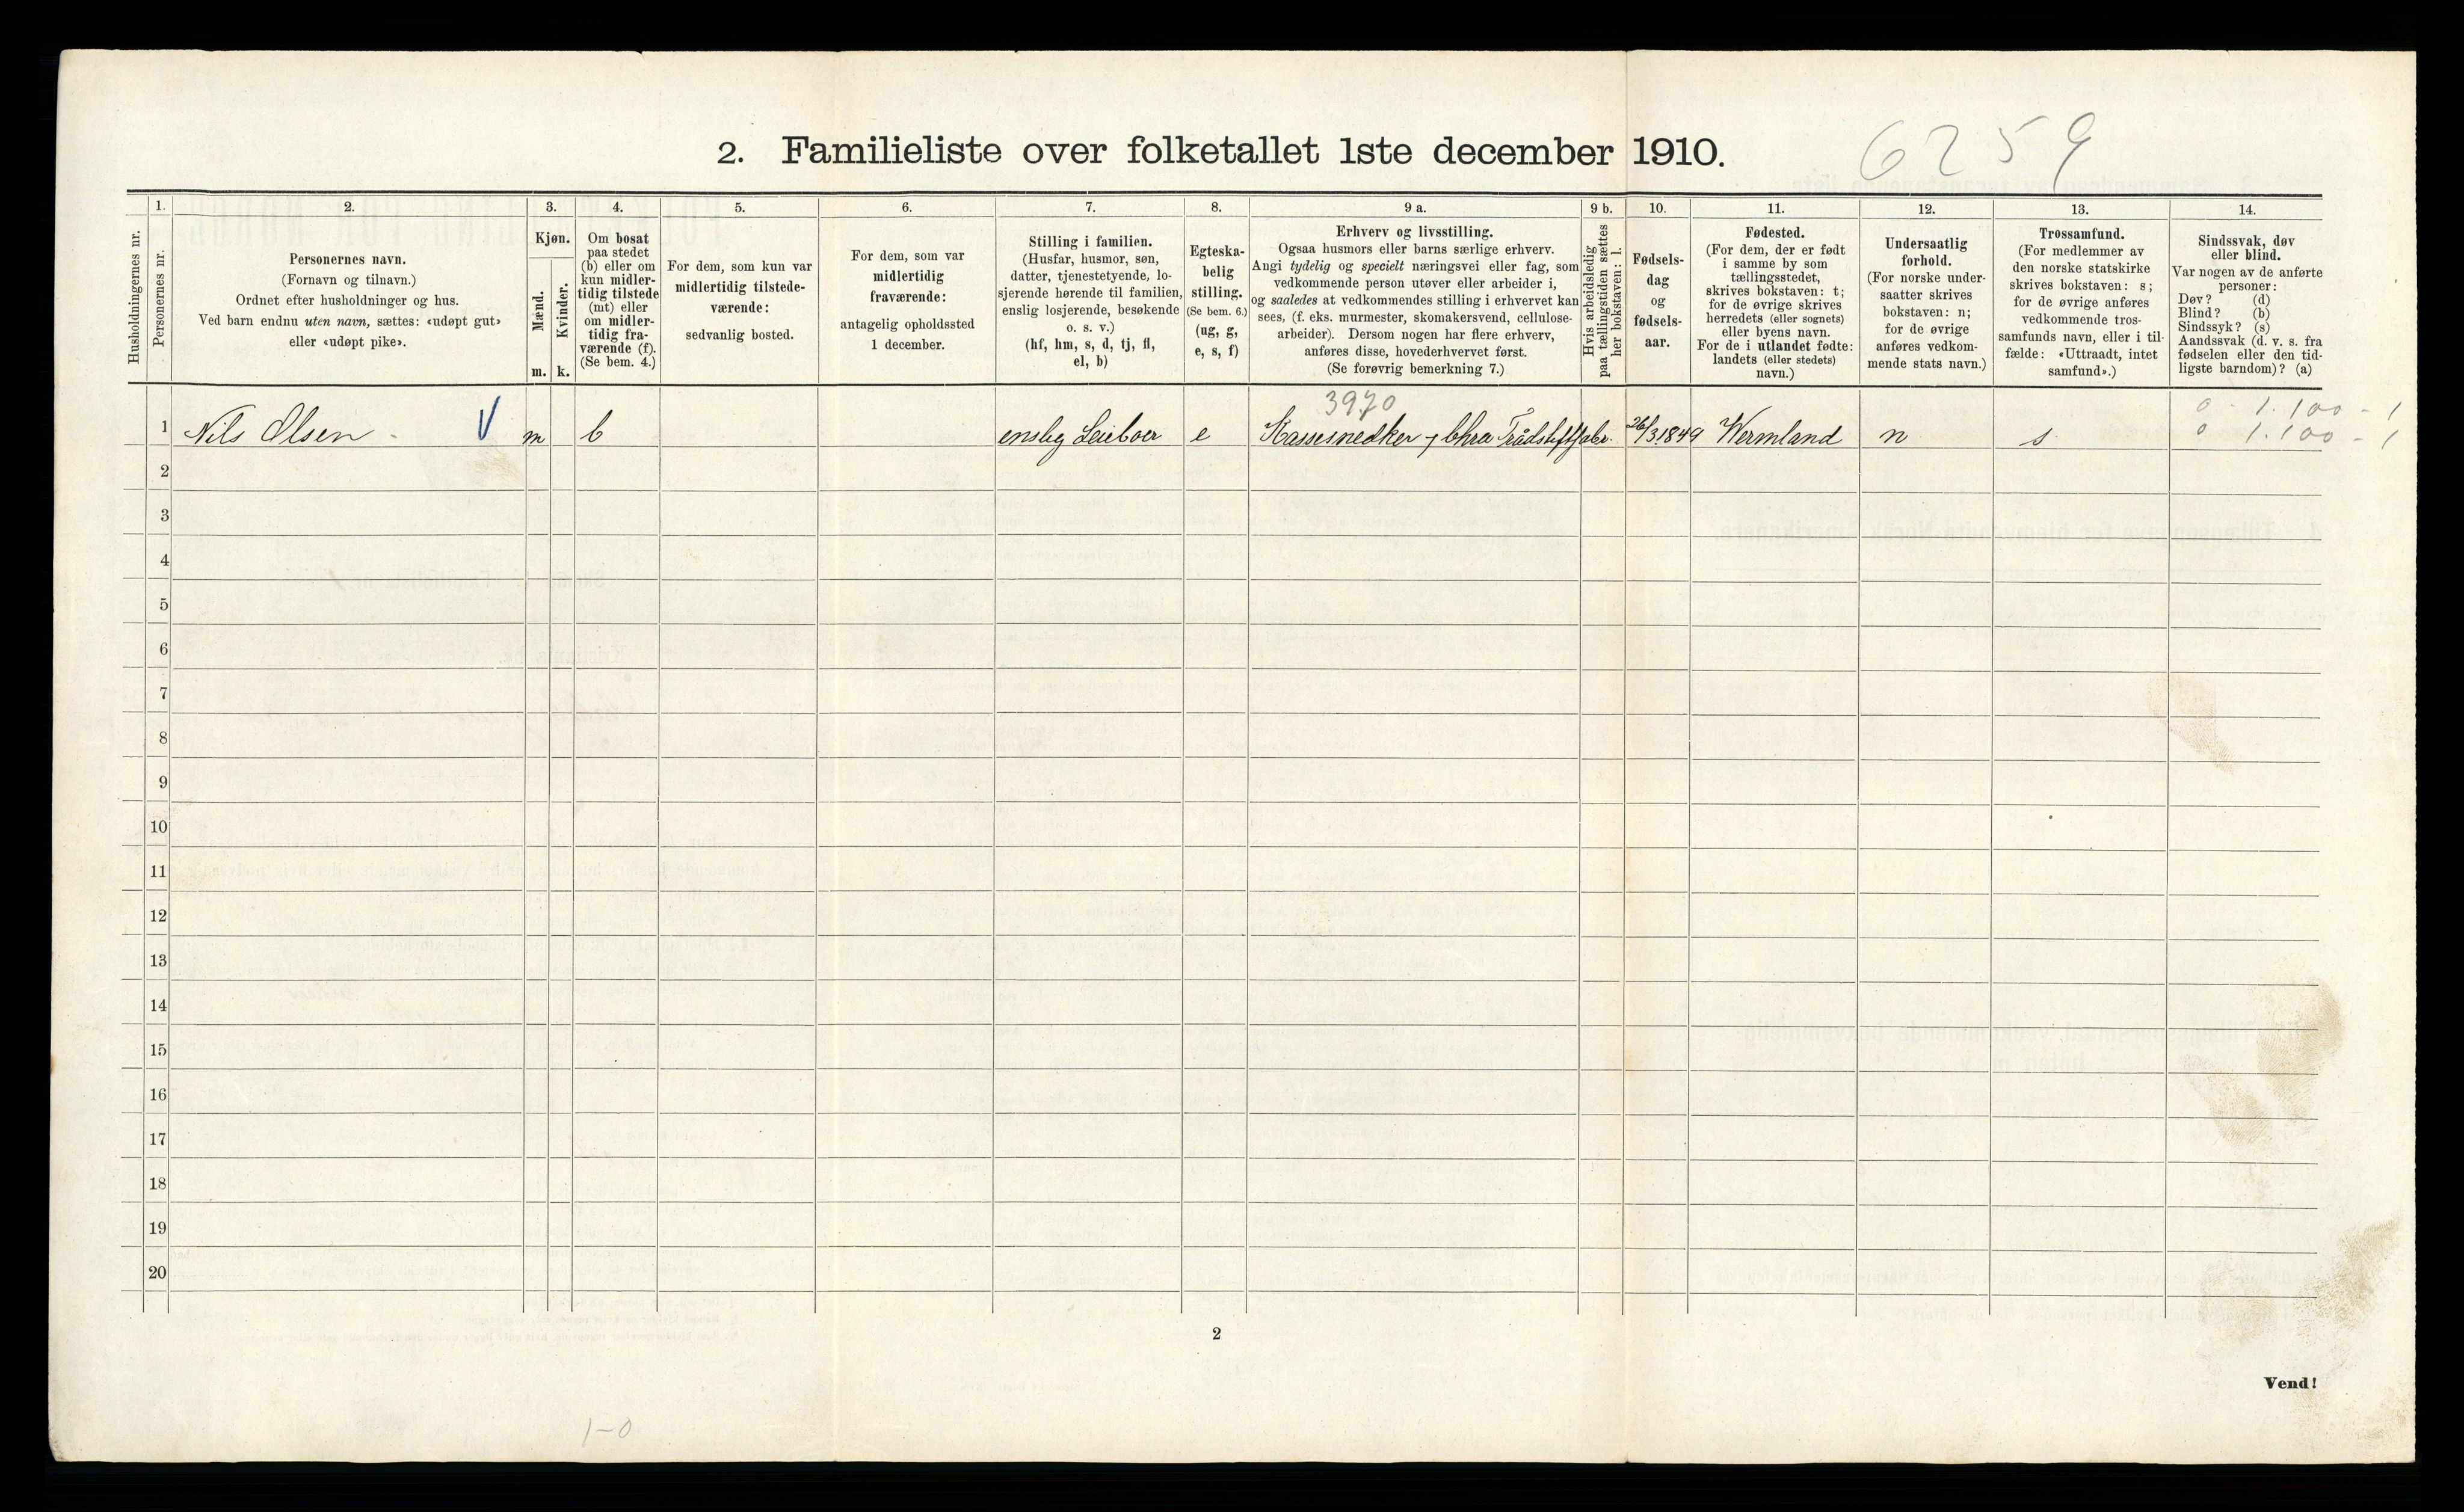 2. Familieliste over folketallet 1ste december 1910.
6259
Husholdningernes nr.
1.
Personernes nr.
2.
Personernes navn.
(Fornavn og tilnavn.)
Ordnet efter husholdninger og hus.
Ved barn endnu uten navn, sættes: «udøpt gut»
eller «udøpt pike».
3.
Kjøn.
Mænd.
Kvinder.
m. k.
4.
Om bosat
paa stedet
(b) eller om
kun midler-
tidig tilstede
(mt) eller
om midler-
tidig fra-
værende (f).
(Se bem. 4.)
5.
For dem, som kun var
midlertidig tilstede-
værende:
sedvanlig bosted.
6.
For dem, som var
midlertidig
fraværende:
antagelig opholdssted
1 december.
7.
Stilling i familien.
(Husfar, husmor, søn,
datter, tjenestetyende, lo-
sjerende hørende til familien,
enslig losjerende, besøkende
o. s. v.)
(hf, hm, s, d, tj, fl,
el, b)
8.
Egteska-
belig
stilling.
(Se bem. 6.)
(ug, g,
e, s, f)
9 a.
Erhverv og livsstilling.
Ogsaa husmors eller barns særlige erhverv.
Angi tydelig og specielt næringsvei eller fag, som
vedkommende person utøver eller arbeider i,
og saaledes at vedkommendes stilling i erhvervet kan
sees, (f. eks. murmester, skomakersvend, cellulose-
arbeider). Dersom nogen har flere erhverv,
anføres disse, hovederhvervet først.
(Se forøvrig bemerkning 7.)
9 b.
Hvis arbeidsledig
paa tællingstiden sættes
her bokstaven: l.
10.
Fødsels-
dag
og
fødsels-
aar.
11.
Fødested.
(For dem, der er født
i samme by som
tællingsstedet,
skrives bokstaven: t;
for de øvrige skrives
herredets (eller sognets)
eller byens navn.
For de i utlandet fødte:
landets (eller stedets)
navn.)
12.
Undersaatlig
forhold.
(For norske under-
saatter skrives
bokstaven: n;
for de øvrige
anføres vedkom-
mende stats navn.)
13.
Trossamfund.
(For medlemmer av
den norske statskirke
skrives bokstaven: s;
for de øvrige anføres
vedkommende tros-
samfunds navn, eller i til-
fælde: «Uttraadt, intet
samfund».)
14.
Sindssvak, døv
eller blind.
Var nogen av de anførte
personer:
Døv? (d)
Blind? (b)
Sindssyk? (s)
Aandssvak (d. v. s. fra
fødselen eller den tid-
ligste barndom)? (a)
3970
0 - 1.100 - 1
1 Nils Olsen - V m b enslig Leieboer e Kassesnedker, Chra Trådstiftfabr. 26/3 1849 Wermland n s 0 1.100 - 1
2
3
4
5
6
7
8
9
10
11
12
13
14
15
16
17
18
19
20
2
Vend!
1-0